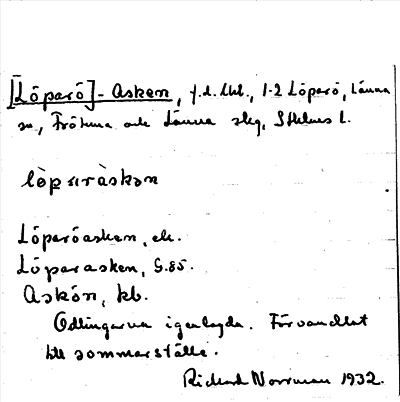 [Löparö]-Asken, f.d. lht., 1-2 Löparö, Länna
sn, Frötuna och Länna slg, Sthlms l.
Löparöasken, ek.
Löparasken, G.85.
Askön, kb.
Odlingarna igenlagda. Förvandlat
till sommarställe.
Rickard Norrman 1932.